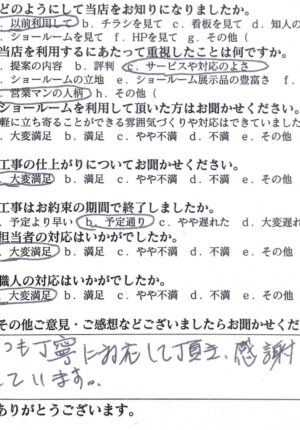 どのようにして当店をお知りになりましたか。
以前利用して b. チラシを見て c. 看板を見て d. 知人の
ショールームを見て f. HPを見て g. その他（
当店を利用するにあたって重視したことは何ですか。
提案の内容 b. 評判 c. サービスや対応のよさ
ショールームの立地 e. ショールーム展示品の豊富さ f.
営業マンの人柄 h. その他（
ショールームを利用して頂いた方はお聞かせください。
軽に立ち寄ることができる雰囲気づくりや対応はできていました
大変満足 b. 満足 c. やや不満 d. 不満 e. その他
工事の仕上がりについてお聞かせください。
大変満足 b. 満足 c. やや不満 d. 不満 e. その他
工事はお約束の期間で終了しましたか。
予定より早い b. 予定通り c. やや遅れた d. 大変遅れ
担当者の対応はいかがでしたか。
大変満足 b. 満足 c. やや不満 d. 不満 e. その他
職人の対応はいかがでしたか。
大変満足 b. 満足 c. やや不満 d. 不満 e. その他
その他ご意見・ご感想などございましたらお聞かせくだ
つも丁寧に対応して頂き、感謝
しています。
ありがとうございます。